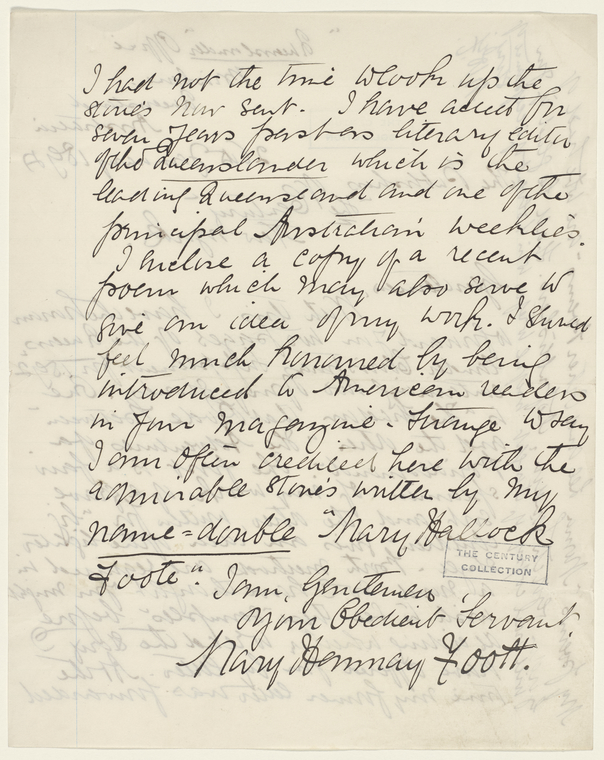 I had not the time to look up the
stories now sent. I have acted for
seven years past as literary editor
of the Queenslander which is the
leading Queensland and one of the
principal Australian weeklies.
I enclose a copy of a recent
poem which may also serve to
give an idea of my work. I should
feel much honoured by being
introduced to American readers
in your magazine. Strange to say
I am often credited here with the
admirable stories written by my
name=double "Mary Hallock
Foote".
THE CENTURY
COLLECTION
I am, Gentlemen,
Your Obedient Servant
Mary Hannay Foott.